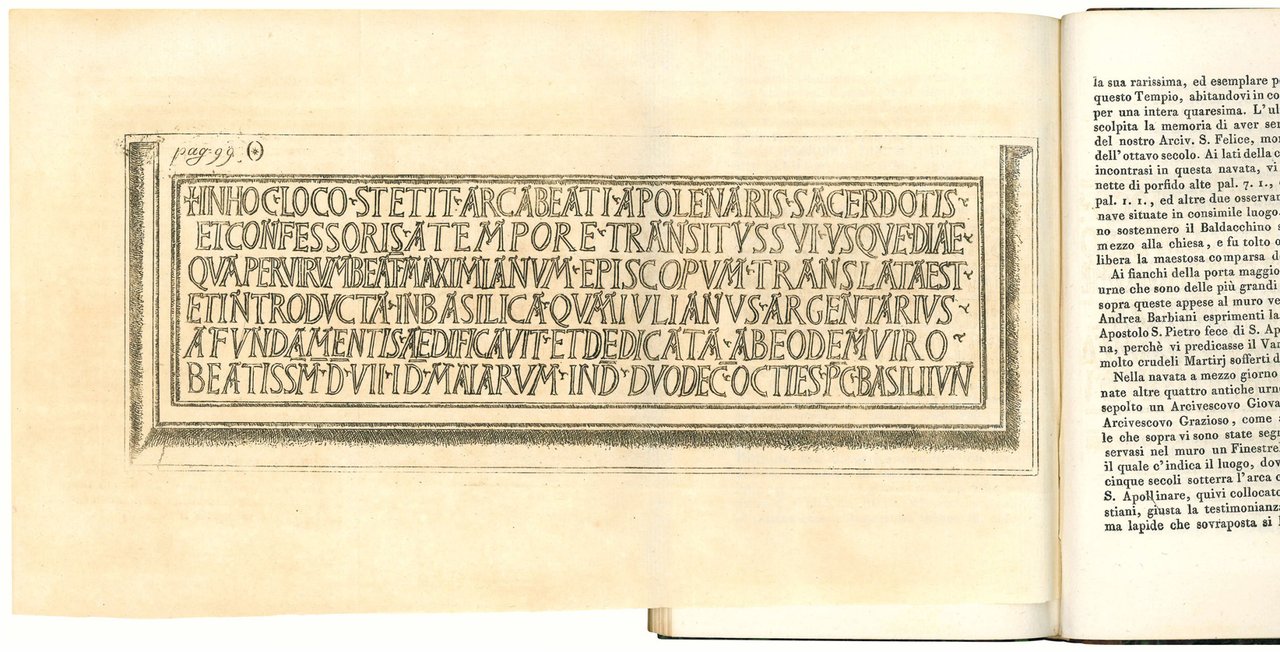 pag. 99. (*)
+ IN HOC·LOCO·STETIT·ARCA BEATI·APOLENARIS·SACERDOTIS·
ET CONFESSORIS·A TEMPORE·TRANSITVS SVI·VSQVE·DIAE·
QVA PER VIRVM BEAT MAXIMIANVM·EPISCOPVM·TRANSLATA EST·
ET INTRODVCTA·IN BASILICA·QVAM IVLIANVS·ARGENTARIVS·
A FVNDAMENTIS·AEDIFICAVIT·ET DEDICATA·AB EODEM VIRO·
BEATISSM·D·VII·ID·MAIARVM·IND·DVODEC·OCTIES·PC·BASILII IVN
la sua rarissima, ed esemplare p
questo Tempio, abitandovi in co
per una intera quaresima. L'ul
scolpita la memoria di aver ser
del nostro Arciv. S. Felice, mor
dell'ottavo secolo. Ai lati della c
incontrasi in questa navata, vi
nette di porfido alte pal. 7. 1.,
pal. 1. 1., ed altre due osservan
nave situate in consimile luogo
no sostennero il Baldacchino s
mezzo alla chiesa, e fu tolto o
libera la maestosa comparsa de
Ai fianchi della porta maggio
urne che sono delle più grandi
sopra queste appese al muro ve
Andrea Barbiani esprimenti la
Apostolo S. Pietro fece di S. Ap
na, perchè vi predicasse il Van
molto crudeli Martirj sofferti d
Nella navata a mezzo giorno
nate altre quattro antiche urn
sepolto un Arcivescovo Giova
Arcivescovo Grazioso, come
le che sopra vi sono state segn
servasi nel muro un Finestre
il quale c'indica il luogo, dov
cinque secoli sotterra l'arca d
S. Apollinare, quivi collocato
stiani, giusta la testimonianz
ma lapide che sovraposta si